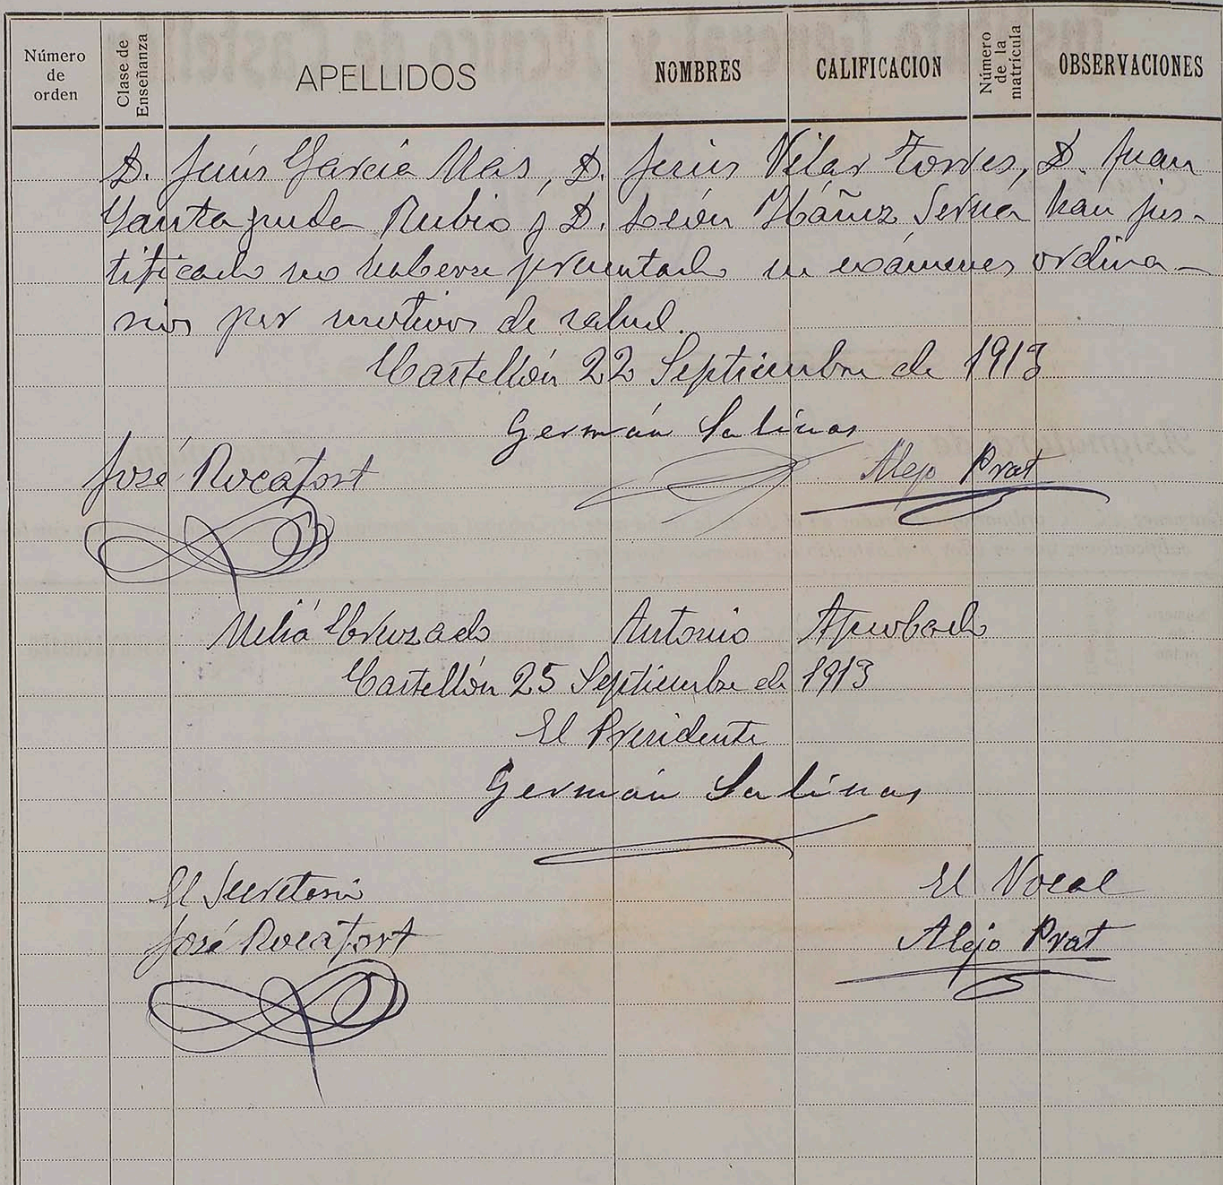 Número de orden Clase de Enseñanza APELLIDOS NOMBRES CALIFICACION Número de la matrícula OBSERVACIONES
D. Jesús García Mas, D. Jesús Vilar Torres, D. Juan
Santa Rubio y D. León Ibáñez Serna han jus-
tificado no haberse presentado en exámenes ordina-
rios por motivos de salud.
Castellón 22 Septiembre de 1913
Germán Salinas
José Rocafort Alejo Prat
Meliá Cruzado Antonio Aprobado
Castellón 25 Septiembre de 1913
El Presidente
Germán Salinas
El Secretario El Vocal
José Rocafort Alejo Prat